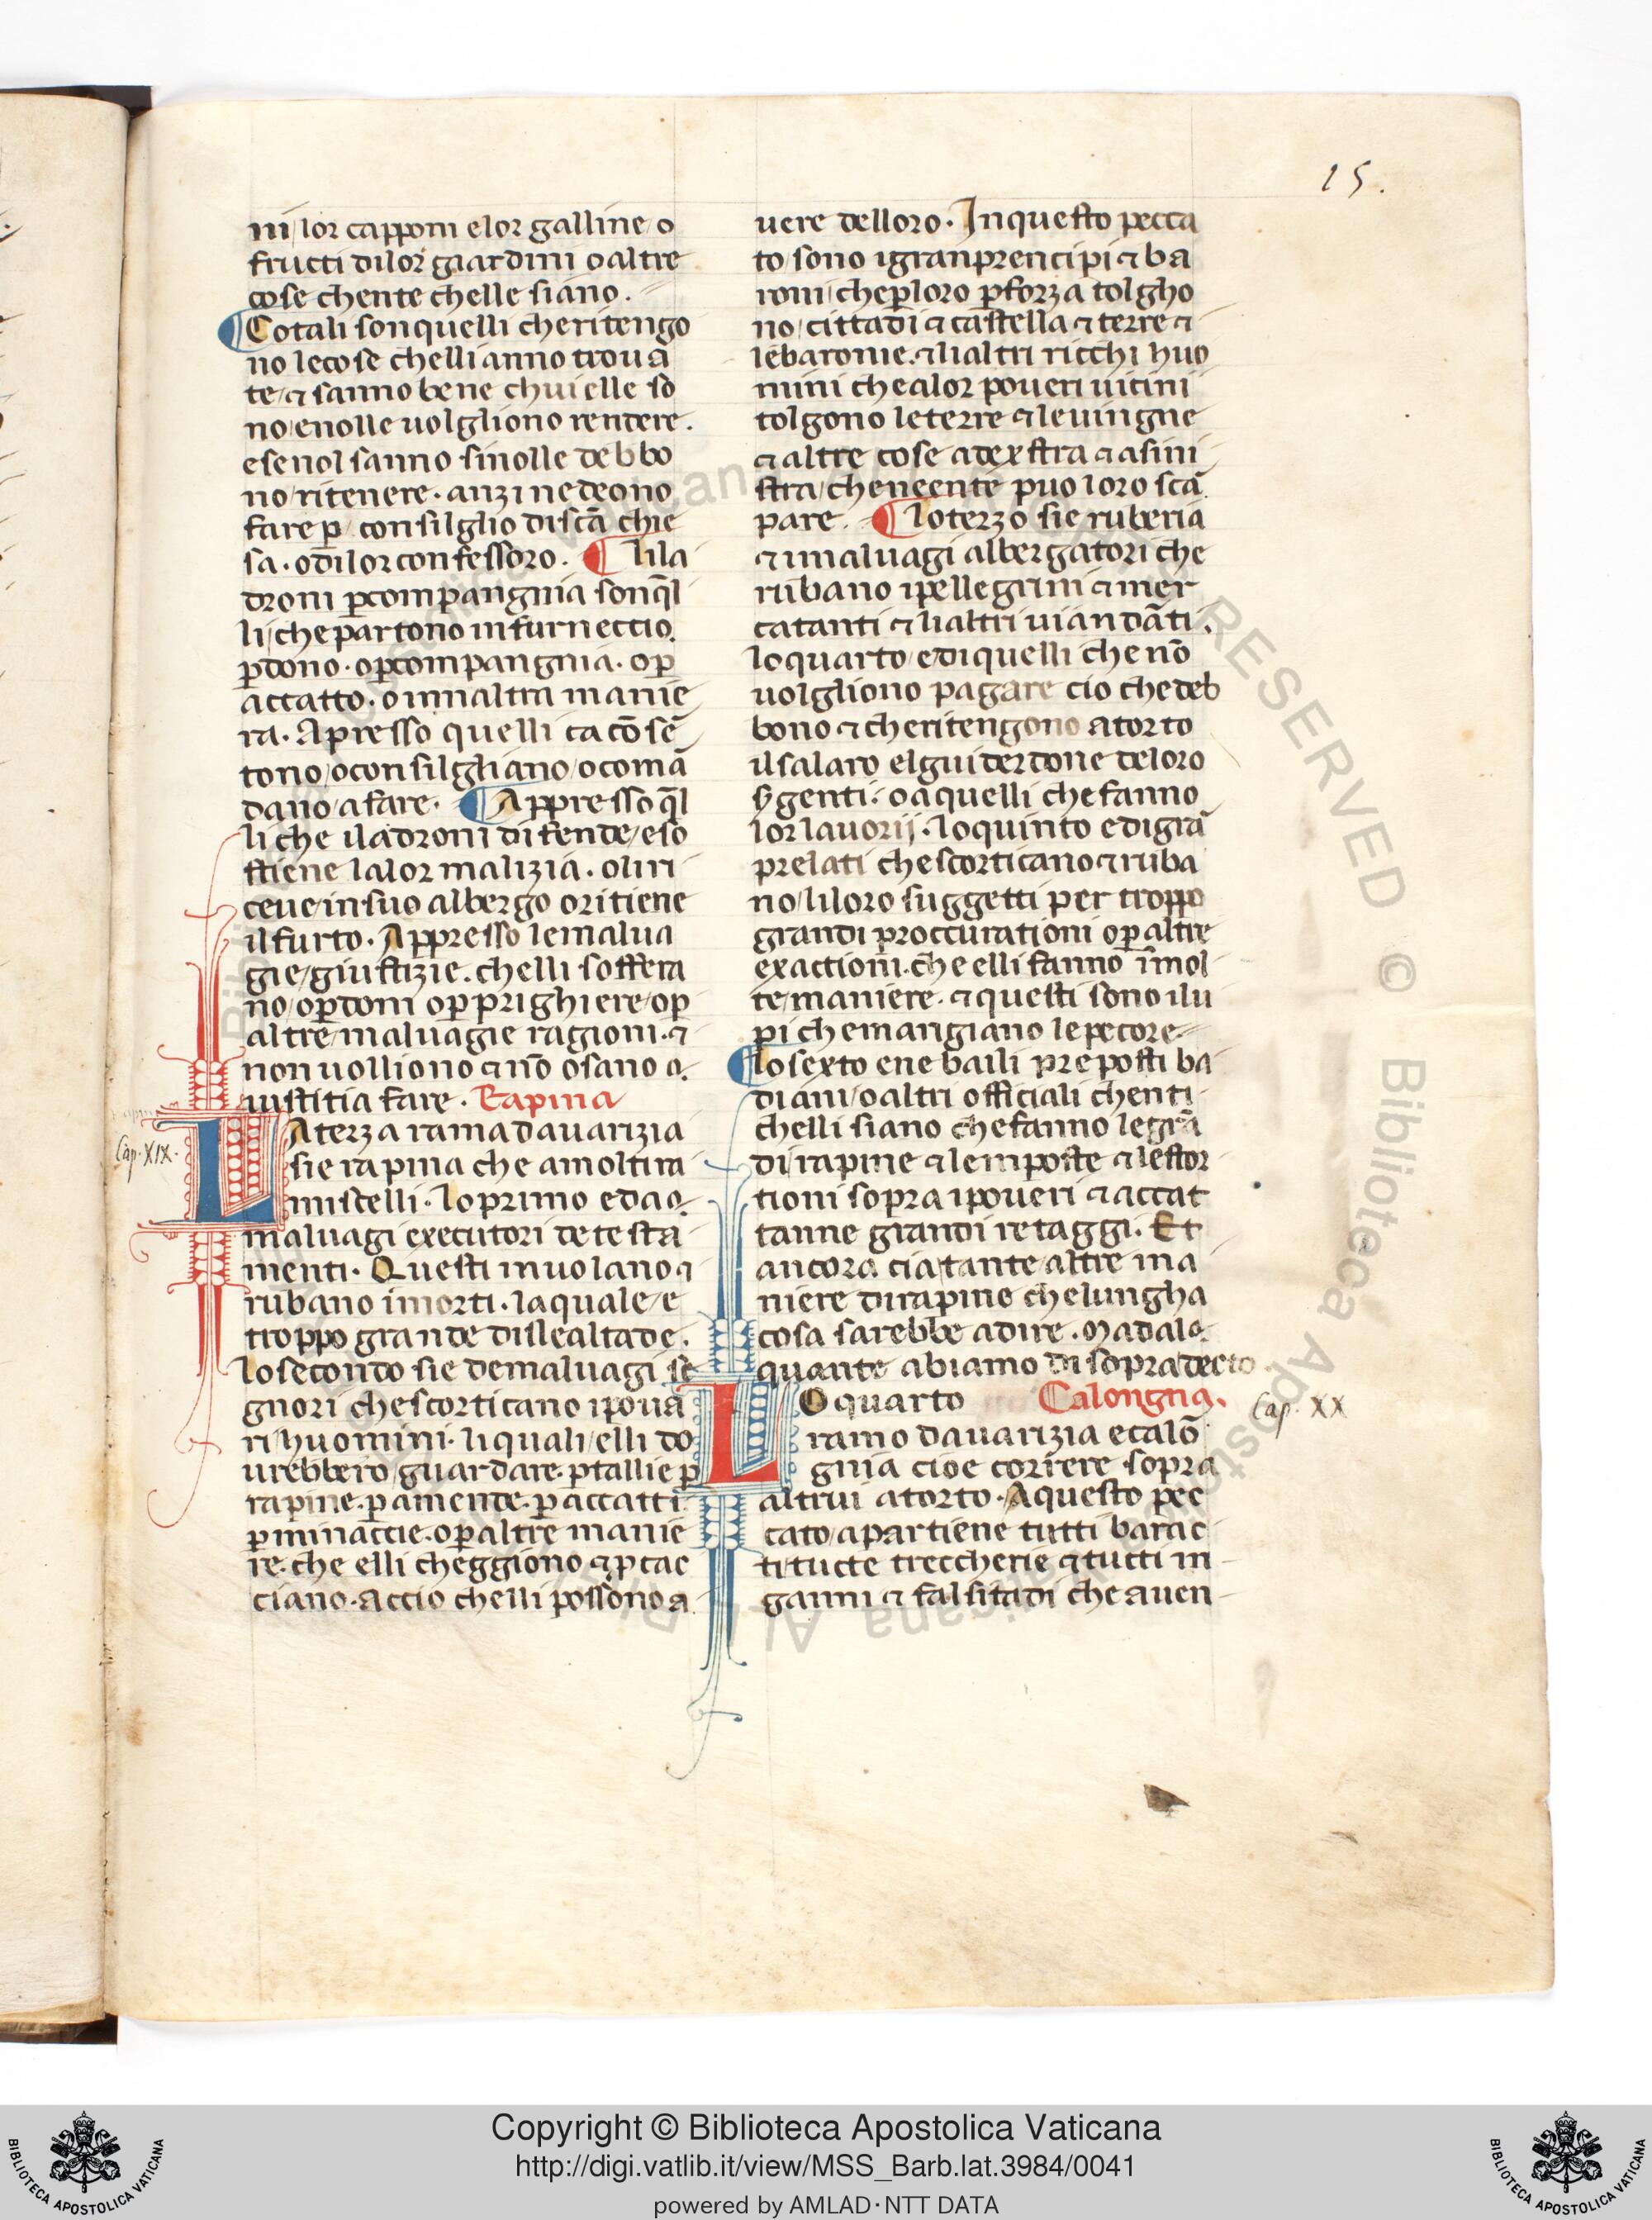 15.
ni/lor capponi elor galline/o
fructi dilor giardini o altre
cose chente chelle siano.
¶ Cotali sonquelli cheritengo
no lecose chelli anno troua
te/⁊ sanno bene chui elle so
no/enolle uolgliono rendere.
esenol sanno sinolle debbo
no/ritenere. anzi nedeono
fare p̱ consilglio discã chie
sa. odilor confessoro. ¶ lila
droni p̱compangnia sonq̄l
li/chepartono infurneccio.
p̱dono. op̱compangnia. op̱
accatto. o innaltra manie
ra. Apresso quelli cacõsẽ
tono/oconsilghano/ocomã
dano/afare. ¶ Appressoq̄l
li che iladroni difende/eso
stiene lalor malizia. oliri
ceue/insuo albergo oritiene
ilfurto. Appresso lemalua
gie/giustizie. chelli soffera
no/op̱doni op̱prighiere/op̱
altre/maluagie ragioni. ⁊
non uolliono ⁊ nõ osano
iustitia fare. Rapina
Cap. XIX.
LA terza rama dauarizia
sie rapina che amoltira
miscelli. loprimo eda
maluagi executori detesta
menti. Questi inuolano ⁊
rubano imorti. laquale/e
troppo grande dislealtade.
losecondo sie demaluagi se
gnori chescorticano ipoua
ri/huomini. liquali/elli do
urebbero/guardare. p̱tallie p̱
rapine. p̱amende. p̱accatti.
p̱minaccie. op̱altre manie
re. che elli cheggiono ⁊p̱cac
ciano. accio chelli possono a
uere delloro. Inquesto pecca
to/sono igranprencipi ⁊ ba
roni/chep̱loro p̱forza tolgho
no/cittadi ⁊ castella ⁊ terre ⁊
lebaronie. ⁊lialtri ricchi huo
mini chealor poueri uicini
tolgono leterre ⁊leuingne
⁊ altre cose adexstra ⁊ asini
stra/cheneente puo loro scã
pare. ¶ loterzo sie ruberia
⁊ imaluagi albergatori che
rubano ipellegrini ⁊ mer
catanti ⁊ lialtri uiandãti.
loquarto/ediquelli che nõ
uolgliono pagare cio chedeb
bono ⁊ cheritengono atorto
ilsalaro elguiderdone deloro
sgenti. oaquelli chefanno
lor lauorij. loquinto edigrã
prelati chescorticano ⁊ ruba
no/liloro suggetti per troppo
grandi proccurationi op̱altre
exactioni. che elli fanno ĩmol
te/maniere. ⁊ questi sono ilu
pi chemangiano lepecore.
¶ losexto ene baili preposti ba
diani/oaltri officiali chenti
chelli siano chefanno legrã
di/rapine ⁊ lemposte ⁊ lestor
tioni sopra ipoueri ⁊ accat
tanne grandi retaggi. Et
ancora cia/tante/altre ma
niere dirapine chelungha
cosa sarebbe adire. Madal
quante abiamo disopra/decto
LO quarto Calongna.
Cap. XX
ramo dauarizia ecalõ
gnia cioe correre sopra
altrui atorto. Aquesto pec
cato/apartiene tutti barac
ti/tucte treccherie ⁊ tutti in
ganni ⁊ falsitadi che auen
Copyright © Biblioteca Apostolica Vaticana
http://digi.vatlib.it/view/MSS_Barb.lat.3984/0041
powered by AMLAD·NTT DATA
BIBLIOTECA APOSTOLICA VATICANA
BIBLIOTECA APOSTOLICA VATICANA